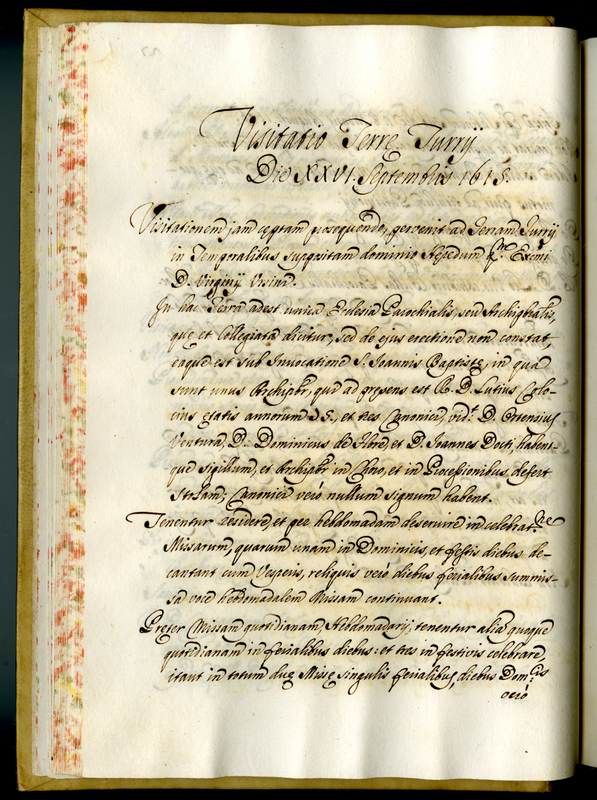 Visitatio Terre Turrij
Die XXVI. Septembris 1615.
Visitationem jam ceptam prosequendo, pervenit ad Terram Turrij
in Temporalibus suppositam dominio Heredum
D. Virginij Vrsini.
In hac Terra adest unica Ecclesia Parochialis, seu Archipbralis,
que et Collegiata dicitur, sed de ejus erectione non constat
eaque est sub Invocatione S. Joannis Baptistę, in qua
sunt unus Archipbr, qui ad presens est R. D. Lutius
etatis annorum 35., et tres Canonici, vid.t D. Ortensius
Ventura, D. Dominicus de Flore, et D. Joannes Docti, habent
que sigillum, et Archipbr in Choro, et in Processionibus defert
Stolam; Canonici verò nullum signum habent.
Tenentur residere, et per hebdomadam deservire in celebrat.ne
Missarum, quarum unam in Dominicis, et festis diebus de-
cantant cum Vesperis, reliquis verò diebus ferialibus summis-
sa voce hebdomadalem Missam continuant.
Preter Missam quotidianam Hebdomadarij, tenentur alia quoque
quotidianam in ferialibus diebus: et tres in festivis celebrare
itaut in totum duę Missę singulis ferialibus, diebus Dom:cis
verò